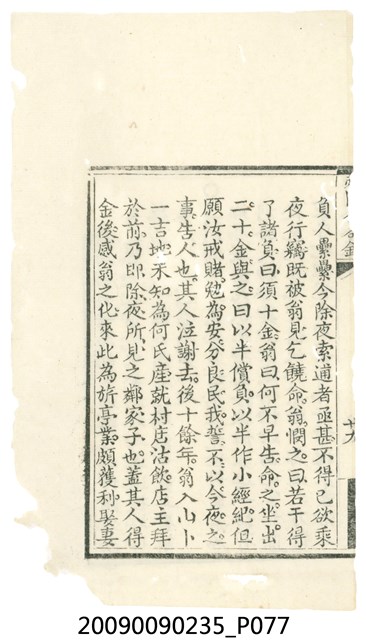 負人纍纍今除夜索逋者亟甚不得已欲乘
夜行竊既被翁見乞饒命翁憫之曰若干得
了諸負曰須十金翁曰何不早告命之坐出
二十金與之曰以半償負以半作小經紀但
願汝戒賭勉為安分良民我誓不以今夜之
事告人也其人泣謝去後十餘年翁入山卜
一吉地未知為何氏產就村店沽飲店主拜
於前乃即除夜所見之鄰家子也蓋其人得
金後感翁之化來此為旂亭業頗獲利娶妻
20090090235_P077